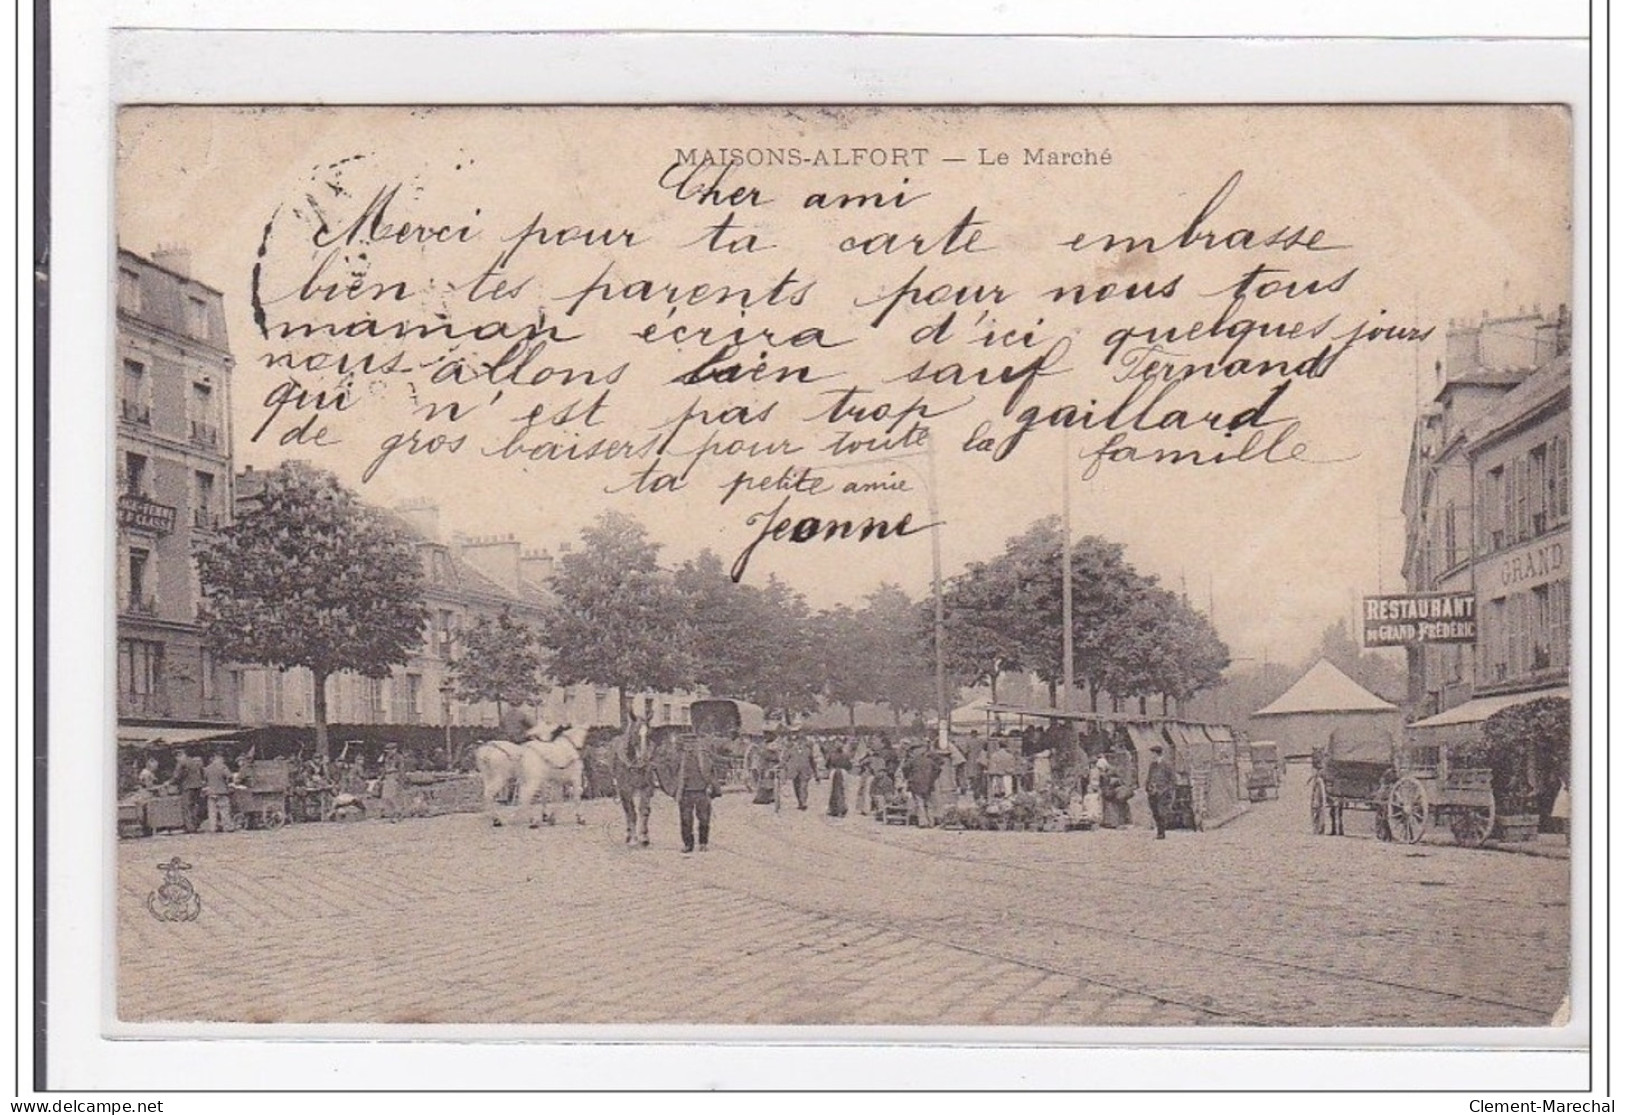 MAISONS-ALFORT — Le Marché
Cher ami
Merci pour ta carte embrasse
bien tes parents pour nous tous
maman écrira d'ici quelques jours
nous allons bien sauf Fernand
qui n'est pas trop gaillard
de gros baisers pour toute la famille
ta petite amie
Jeanne
GRAND
RESTAURANT
DU GRAND FRÉDÉRIC
Clement-Marechal